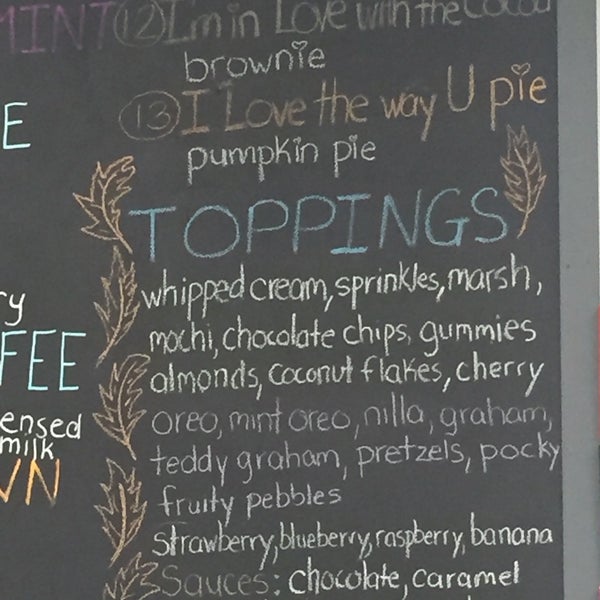 MINT
12 I'm in Love with the Cocoa
brownie
E
13 I Love the way U pie
pumpkin pie
TOPPINGS
whipped cream, sprinkles, marsh,
ry
mochi, chocolate chips, gummies
FEE
almonds, coconut flakes, cherry
ensed
oreo, mint oreo, nilla, graham,
milk
teddy graham, pretzels, pocky
WN
fruity pebbles
strawberry, blueberry, raspberry, banana
Sauces: chocolate, caramel